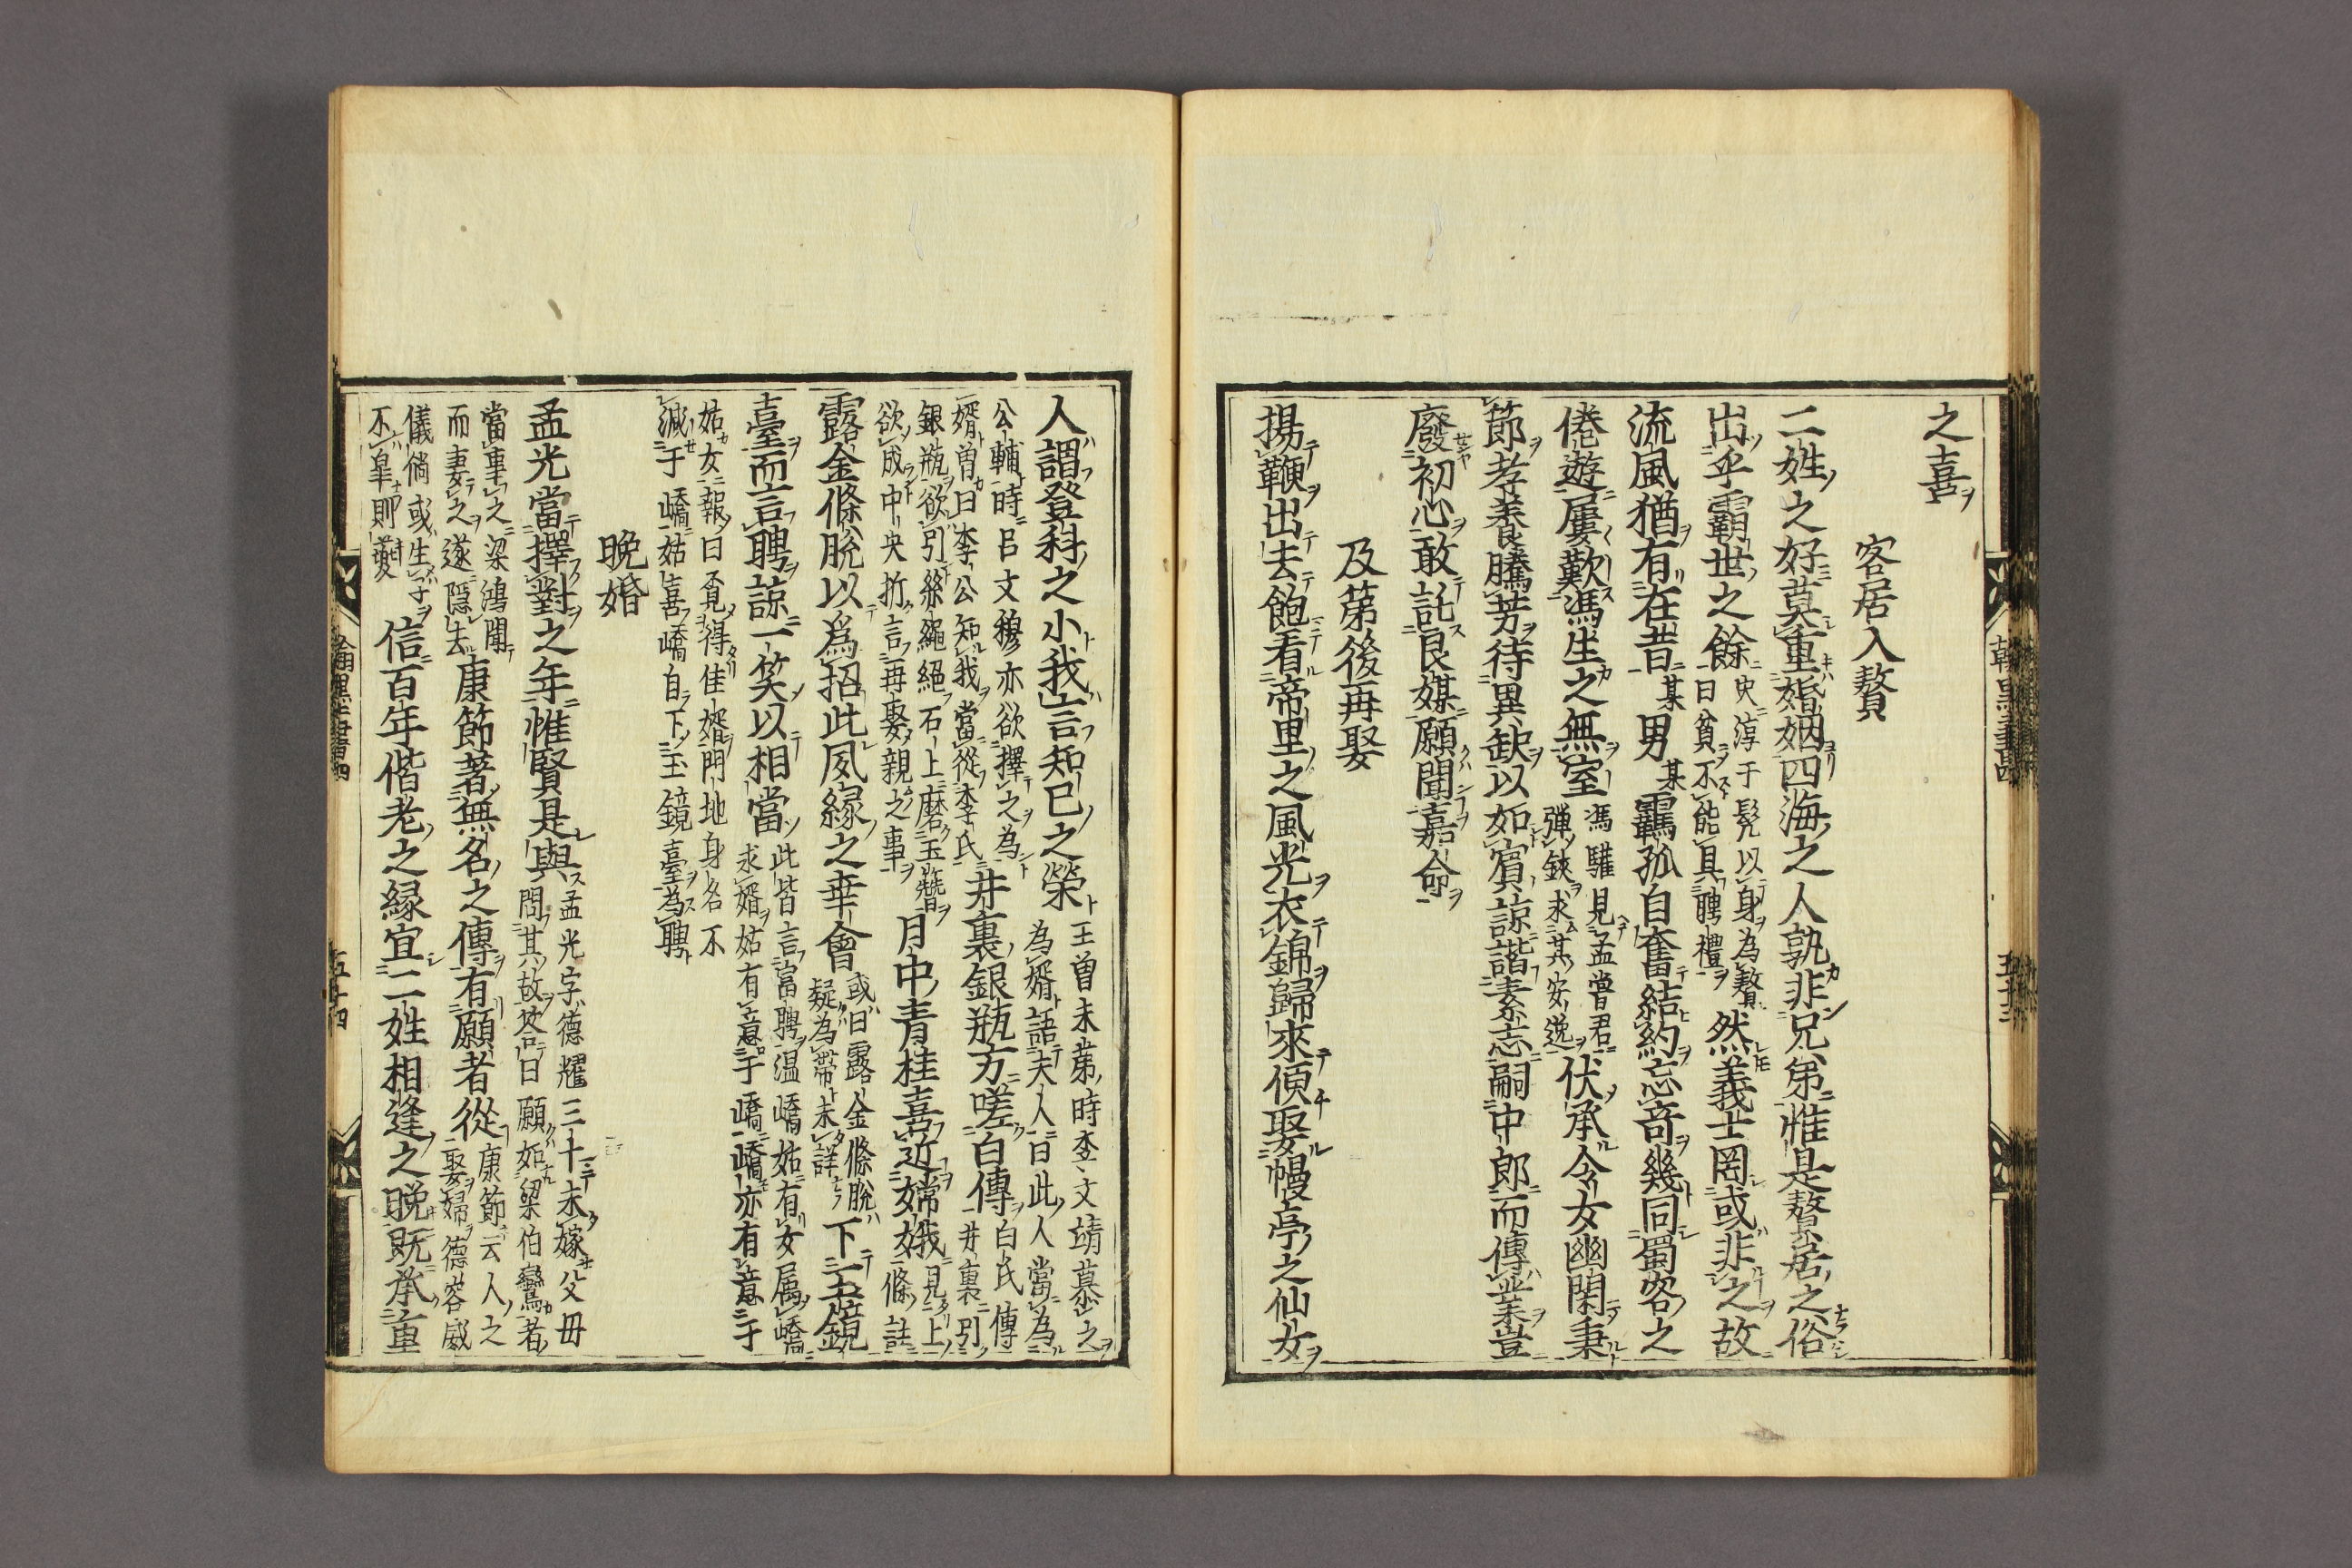 之喜
客居入贅
二姓之好莫重婚姻四海之人孰非兄弟惟是贅居之俗
出乎霸世之餘史淳于髡以身為贅
曰貧不能具聘禮然義士罔或非之故
流風猶有在昔某男某羈孤自奮結約忘竒幾同蜀客之
倦遊屢歎馮生之無室馮驩見孟嘗君
彈鋏求其安逸伏承令女幽閑秉
節孝養騰芳待異缺以如賓諒諧素志嗣中郎而傳業豈
廢初心敢託良媒願聞嘉命
及第後再娶
揚鞭出去飽看帝里之風光衣錦歸來傎娶幔亭之仙女
人謂登科之小我言知已之榮王曽未第時李文靖慕之
為婿語夫人曰此人當為
公輔時呂文穆亦欲擇之為
婿曽曰李公知我當從李氏井裏銀瓶方嗟白傳白氏傳
井裏引
銀瓶欲引絲繩絶石上磨玉簪
欲成中央折言再娶親之事月中青桂喜近嫦娥見上
條註
露金條脫以爲招此夙緣之幸會或曰露金條脫
疑為帶未詳下玉鏡
臺而言聘諒一笑以相當此皆言富聘温嶠姑有女属嶠
求婿姑有意于嶠嶠亦有意于
姑女報曰覔得佳婿門地身名不
減于嶠姑喜嶠自下玉鏡臺為聘
晩婚
孟光當擇對之年惟賢是與孟光字德耀三十未嫁父毋
問其故答曰願如梁伯鸞者
當事之梁鴻聞
而妻之遂隱去康節著無名之傳有願者從康節云人之
娶婦德容威
儀倘或生子
不皐則夔信百年偕老之緣宜二姓相逢之晩既承重